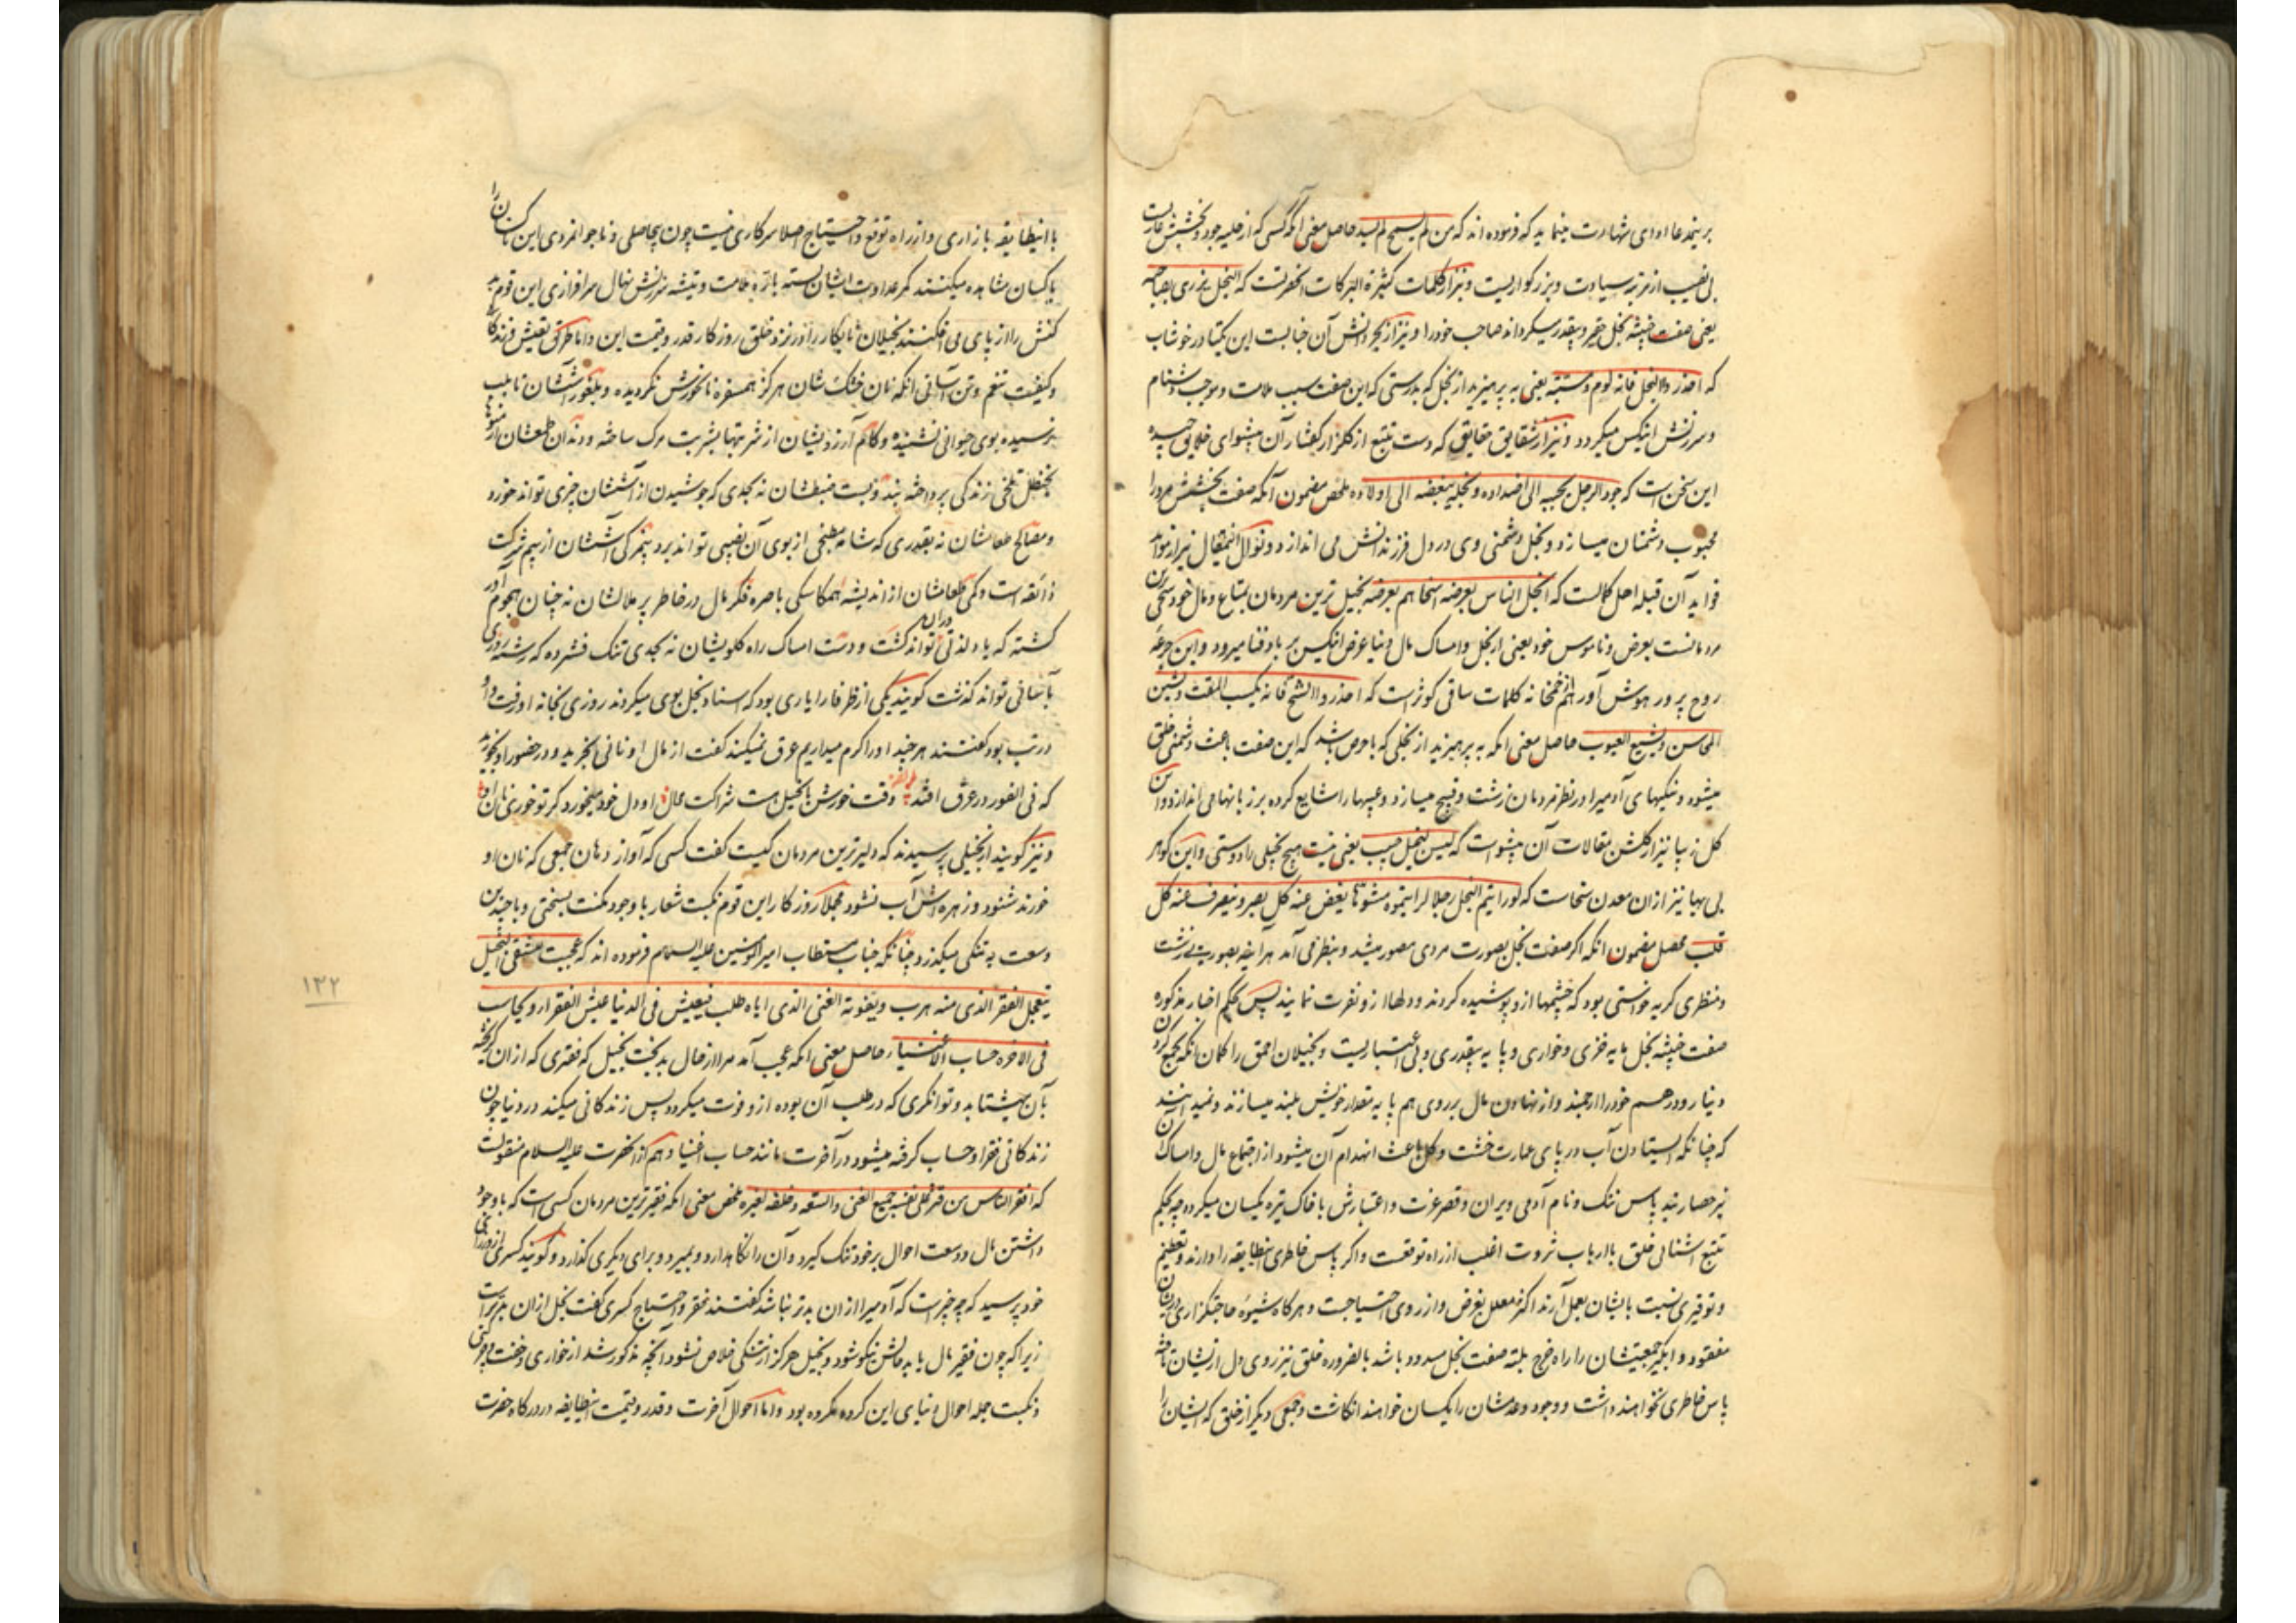 برینمدعا ادای شهادت مینماید که فرموده اند که من لم یسمح لم یسد حاصل معنی آنکه کسی که از حلیه جود و بخشش عاریست
بی نصیب از مرتبه سیادت و بزرگواریست و نیز از کلمات کثیرة البرکات آنحضرتست که البخل یزری بصاحبه
یعنی صفت خبیثه بخل حقیر و بیقدر میگرداند صاحب خود را و نیز از بحر دانش آن جنابست این یکتا در خوشاب
که احذروا البخل فانه لوم و مسبّة یعنی به پرهیزید از بخل که بدرستی که این صفت سبب ملامت و موجب دشنام
و سرزنش اینکس میگردد و نیز از شقایق حقایق که دست تتبع از گلزار گفتار آن پیشوای خلایق چیده
این سخن است که جود الرجل یحببه الی اضداده و بخله یبغضه الی اولاده ملخص مضمون آنکه صفت بخشش مرد را
محبوب دشمنان میسازد و بخل دشمنی وی در دل فرزندانش می اندازد و نوال
فواید آن قبله اهل کمالست که ابخل الناس بعرضه اسخاهم بعرضه بخیل ترین مردمان بمتاع و مال خود سخی ترین
مردمانست بعرض و ناموس خود یعنی از بخل و امساک مال دنیا عرض اینکس بر باد فنا میرود و این جرعه
روح پرور هوش آور هم از خمخانه کلمات ساقی کوثر است که احذروا الشح فانه یکسب المقت و یشین
المحاسن و یشیع العیوب حاصل معنی آنکه به پرهیزید از بخلی که با حرص باشد که این صفت باعث دشمنی خلق
میشود و نیکیهای آدمیرا در نظر مردمان زشت و قبیح میسازد و عیبها را شایع کرده بر زبانها می اندازد و این
گل زیبا نیز از گلشن مقالات آن پیشواست که لیس لبخیل حبیب یعنی نیست هیچ بخیلی را دوستی و این گوهر
بی بها نیز از آن معدن سخاست که لو رایتم البخل رجلا لرایتموه مشوها یغض عنه کل بصر و ینصرف عنه کل
قلب محصل مضمون آنکه اگر صفت بخل بصورت مردی مصور میشد و بنظر می آمد هر آینه بصورتی زشت
و منظری کریه خواستی بود که چشمها ازو پوشیده گردند و دلها ازو نفرت نمایند پس بحکم اخبار مذکوره
صفت خبیثه بخل مایه خزی و خواری و پایه بیقدری و بی اعتباریست و بخیلان احمق را گمان آنکه بجمع کردن
دینار و درهم خود را ارجمند و از نهادن مال بر روی هم پایه مقدار خویش بلند میسازند و نمیدانند
که چنانکه ایستادن آب در پای عمارت خشت و گل باعث انهدام آن میشود از اجتماع مال و امساک آن
نیز حصار بند پاس ننگ و نام آدمی ویران و قصر عزت و اعتبارش با خاک تیره یکسان میگردد چه بحکم
تتبع آشنائی خلق با ارباب ثروت اغلب از راه توقعست و اگر پاس خاطری اینطایفه را دارند و تعظیم
و توقیری نسبت بایشان بعمل آرند اکثر معلل بغرض و از روی احتیاجست و هرگاه شیوه حاجتگزاری در ایشان
مفقود و آبگیر جمعیتشان را راه خرج بلته صفت بخل مسدود باشد بالضروره خلق نیز روی دل از ایشان تافته
پاس خاطری نخواهند داشت و وجود و عدمشان را یکسان خواهند انگاشت و جمعی دیگر از خلق که ایشان را
با اینطایفه بازاری و از راه توقع و احتیاج اصلا سر کاری نیست چون بیحاصلی و ناجوانمردی این ناکسان را
با کسان مشاهده میکنند کمر عداوت ایشان بسته باره ملامت و تیشه سرزنش نهال سرافرازی این قوم بد
کنش را از پای می افکنند بخیلان نابکار را در نزد خلق روزگار قدر و قیمت این و اما طرق تعیش و زندگانی
و کیفیت تنعم و تن آسانی آنکه نان خشک شان هرگز همسفره نانخورش نگردیده و بلغور آششان تا بلب
نرسیده بوی حیوانی نشنیده و کام آرزویشان از شربتها بشربت مرگ ساخته و دندان طمعشان از میوه ها
بحنظل تلخی زندگی پرداخته بند و بست ضبطشان نه بحدی که جوشیدن از آششان چیزی تواند خورد
و مصالح طعامشان نه بقدری که شامه مطبخی از بوی آن نصیبی تواند برد بیمزگی آششان از بیم شرکت
ذائقه است و کمی طعامشان از اندیشه همکاسگی باصره فکر مال در خاطر پر ملالشان نه چنان هجوم آور
گشته که یاد لذتی در آن تواند گشت و دست امساک راه گلویشان نه بحدی تنگ فشرده که رشته روزی
بآسانی تواند گذشت گویند یکی از ظرفا را یاری بود که اسناد بخل بوی میکردند روزی بخانه او رفت و او
در تب بود گفتند هر چند او را گرم میداریم عرق نمیکند گفت از مال او نانی بخرید و در حضور او بخورید
که فی الفور در عرق افتد وقت خورش با بخیل هست شراکت محال او دل خود میخورد گر تو خوری نان او
و نیز گویند از بخیلی پرسیدند که دلیرترین مردمان کیست گفت کسی که آواز دهان جمعی که نان او
خورند شنود و زهره اش آب نشود مجملا روزگار این قوم نکبت شعار با وجود مکنت بسختی و با چندین
وسعت به تنگی میگذرد چنانکه جناب مستطاب امیر المومنین علیه السلام فرموده اند که عجبت لشقی البخیل
یتعجل الفقر الذی منه هرب و یفوته الغنی الذی ایاه طلب فیعیش فی الدنیا عیش الفقرا و یحاسب
فی الاخره حساب الاغنیا حاصل معنی آنکه عجب آمد مرا از حال بدبخت بخیل که فقری که از آن گریخته
بآن میشتابد و توانگری که در طلب آن بوده ازو فوت میگردد پس زندگانی میکند در دنیا چون
زندگانی فقرا و حساب کرفته میشود در آخرت مانند حساب اغنیا و هم از آنحضرت علیه السلام منقولست
که افقر الناس من قتر علی نفسه جمیع الغنی و السعه و خلفه لغیره ملخص معنی آنکه فقیرترین مردمان کسی است که با وجود
داشتن مال و وسعت احوال بر خود تنگ گیرد و آن را نگاهدارد و بمیرد و برای دیگری گذارد و گویند کسری از وزرای
خود پرسید که چه چیز است که آدمیرا از آن بدتر نباشد گفتند فقر و احتیاج کسری گفت بخل از آن بدتر است
زیرا که چون فقیر مال یابد حالش نیکو شود و بخیل هرگز از تنگی خلاص نشود آنچه مذکور شد از خواری و خفت
و نکبت جمله احوال دنیای این گروه مکروه بود و اما احوال آخرت و قدر و قیمت اینطایفه در درگاه حضرت
۱۳۲